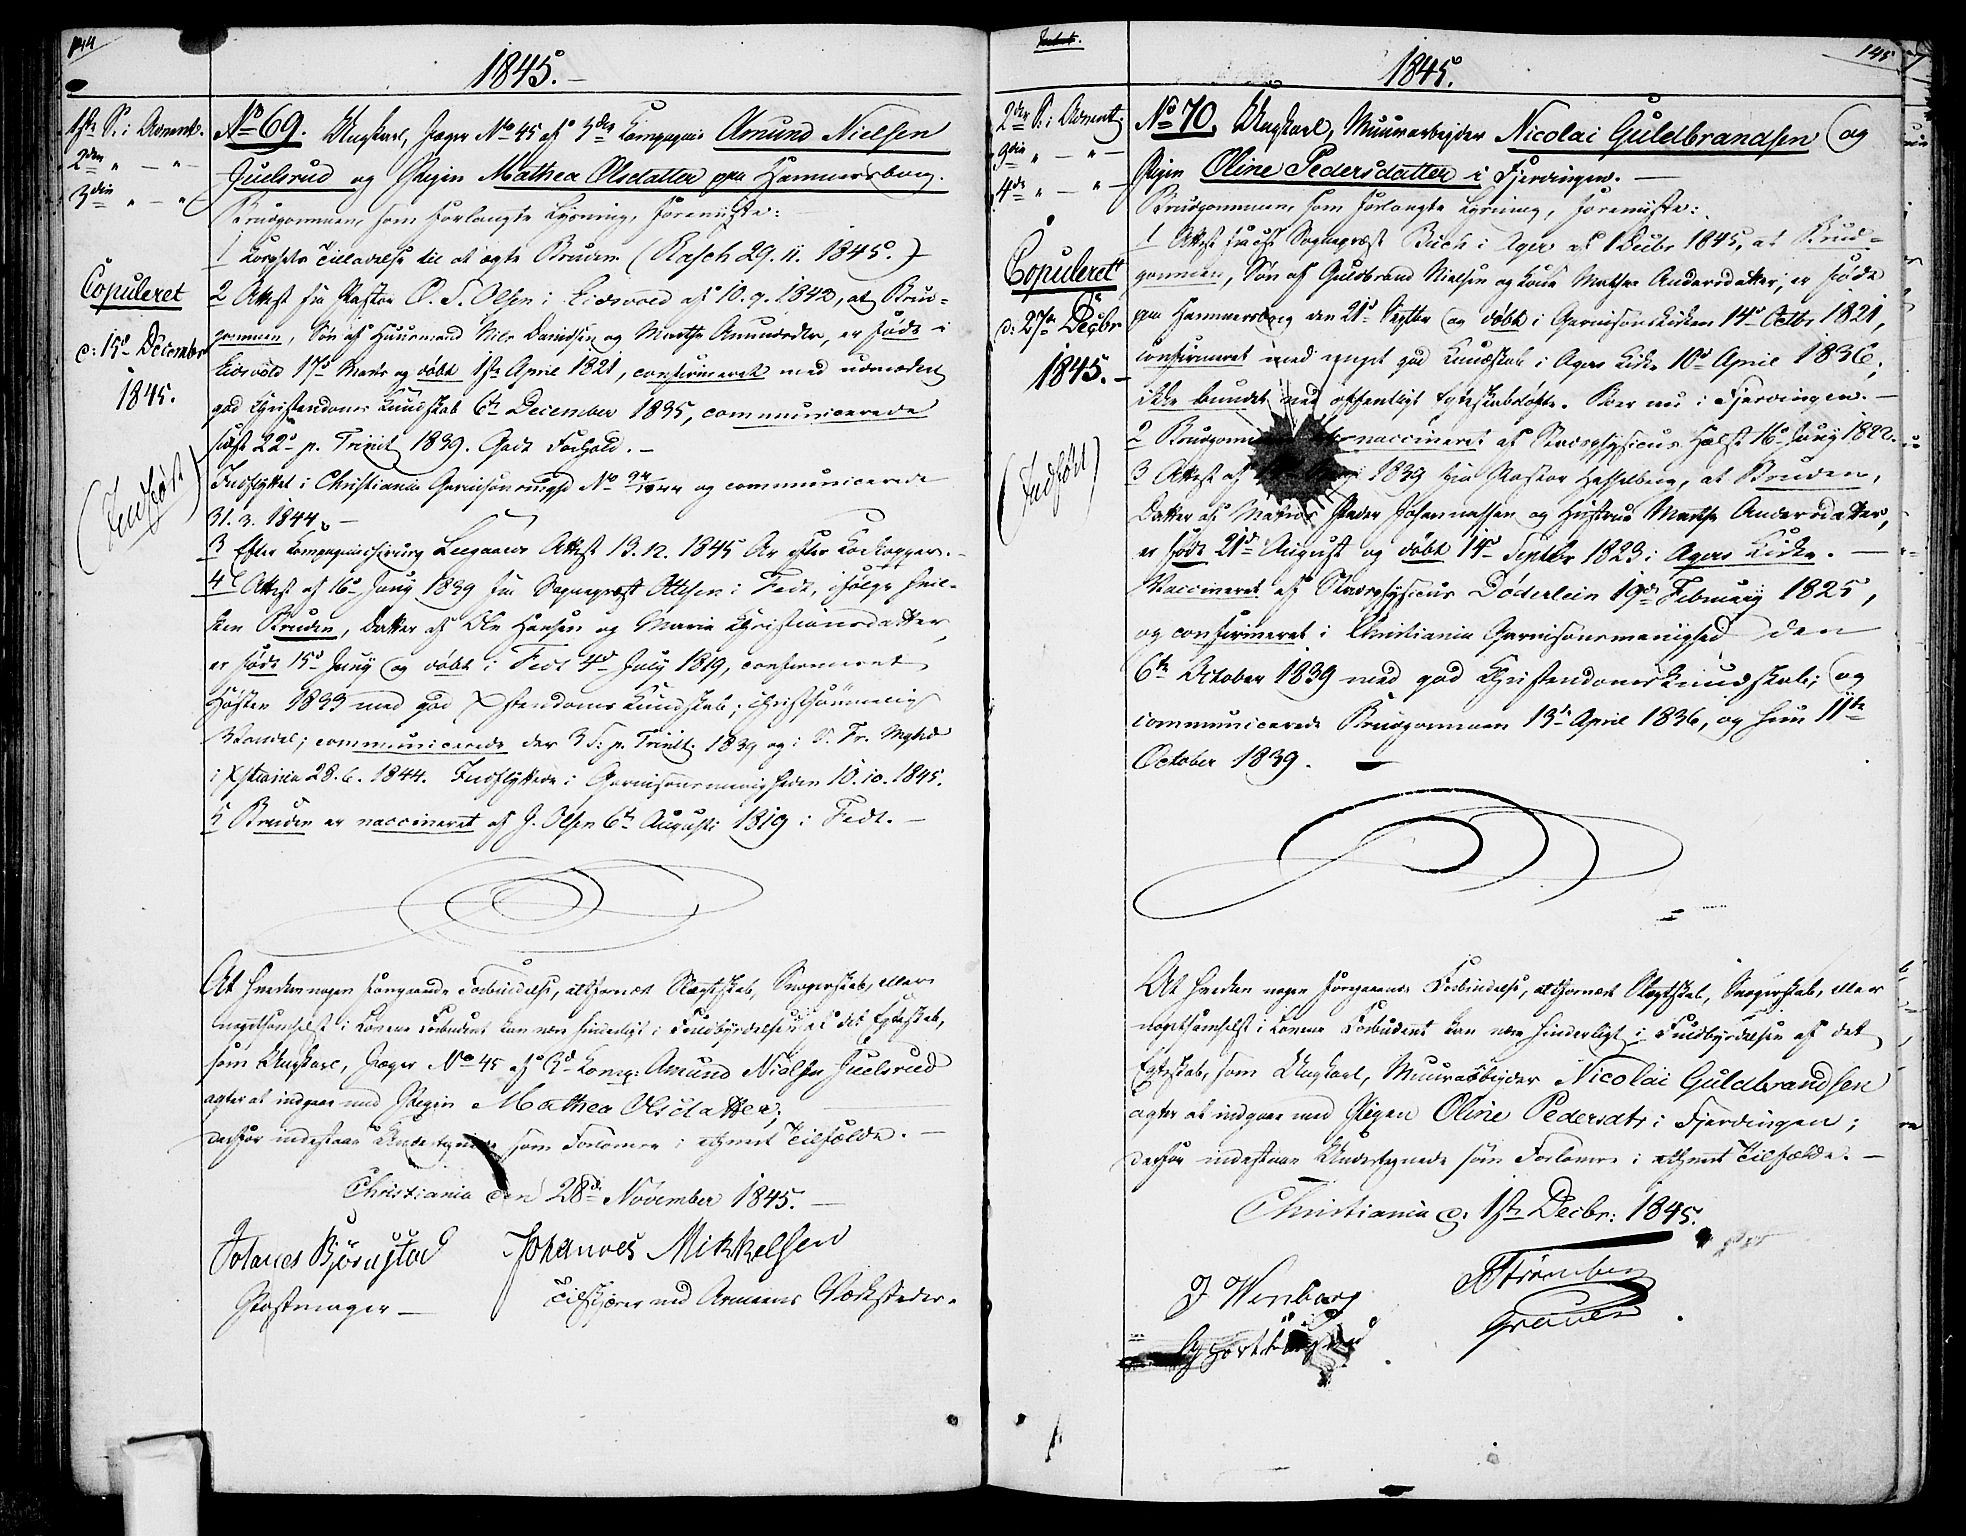 144
1845.
1ste S. i Advent.
2den " — " —
3die " — "
Copuleret
d: 15d December
1845.
(Indført)
No 69. Ungkarl, Jæger No 45 af 3die Compagnie Amund Nielsen
Juelsrud og Pigen Mathea Olsdatter paa Hammersborg.
Brudgommen, som forlangte Lysning, foreviiste:
1 Corpsets Tilladelse til at ægte Bruden (Rasch 29. 11. 1845.)
2 Attest fra Pastor O. S. Olsen i Eidsvold af 10. 9. 1842, at Brud-
gommen, Søn af Huusmand Nils Danielsen og Marthe Amundsdtr, er født i
Eidsvold 17d Marts og døbt 1ste April 1821, confirmeret med udmærket
god Christendoms Kundskab 6te December 1835, communicerede
sidst 22d p. Trinit 1839. Godt Forhold. —
Indflyttet i Christiania Garnisonsmgd No og communicerede
31. 3. 1844. —
3 Efter Compagniechirurg Attest 13. 12. 1845 Ar efter Kokopper. —
4 Attest af 16d Juny 1839 fra Sognepræst Ottesen i Fedt, ifølge hvil-
ken Bruden, Datter af Ole Hansen og Maria Christiansdatter,
er født 15d Juny og døbt i Fedt 4d July 1819, confirmeret
Høsten 1833 med god Xstendoms Kundskab; christsømmelig
Vandel; communicerede der 3 S. p. Trinit. 1839 og i V. Fr. Mghd
i Xstiania 28. 6. 1844. Indflyttede i Garnisonsmenigheden 10. 10. 1845.
5 Bruden er vaccineret af J. Olsen 6te Augusti 1819 i Fedt. —
At hverken nogen foregaaende Forbindelse, altfornært Slægtskab, Svogerskab, eller
nogetsomhelst i Lovene Forbudent kan være hinderligt i Fuldbyrdelsen af det Egteskab,
som Ungkarl, Jæger No 45 af 3d Komp: Amund Nielsen Juelsrud
agter at indgaae med Pigen Mathea Olsdatter;
derfor indestaae Undertegnede som Forlovere i ethvert Tilfælde. —
Christiania den 28d November 1845. —
Johanes Bjørnstad Johannes Mikkelsen
Postmager — Tilskjærer ved Armeens Værksteder.
145
1845.
2den S. i Advent
3die " — " —
4de " — " —
Copuleret
d: 27de Decbr
1845. —
(Indført)
No 70. Ungkarl, Muurarbejder Nicolai Guldbrandsen og
Pigen Oline Pedersdatter i Fjerdingen. —
Brudgommen, som forlangte Lysning, foreviiste:
1 Attest fra Sognepræst Buch i Ager af 1 Decbr 1845, at Brud-
gommen, Søn af Guldbrand Nielsen og Kone Mathea Andersdatter, er født
paa Hammersborg den 21d Septbr og døbt i Garnisonskirken 14d Octbr 1821,
confirmeret med meget god Kundskab i Agers Kirke 10d April 1836;
ikke bundet ved offentligt Egteskabsløfte. Boer nu i Fjerdingen. —
2 Brudgommen vaccineret af Stadsphysicus Holst 16d Juny 1822.
3 Attest af 1839 fra Pastor Hesselberg, at Bruden,
Datter af Matros Peder Johannessen og Hustrue Marthe Andersdatter,
er født 21d August og døbt 14d Septbr 1823 i Agers Kirke. —
Vaccineret af Stadsphysicus Døderlein 19de February 1825,
og confirmeret i Christiania Garnisonsmenighed den
6te October 1839 med god Christendomskundskab; og
communicerede Brudgommen 13de April 1836, og hun 11te
October 1839. —
At hverken nogen foregaaende Forbindelse, altfornært Slægtskab, Svogerskab, eller
nogetsomhelst i Lovene Forbudent kan være hinderligt i Fuldbyrdelsen af det
Egteskab, som Ungkarl, Muurarbejder Nicolai Guldbrandsen
agter at indgaae med Pigen Oline Pedersdtr i Fjerdingen;
derfor indestaae Undertegnede som Forlovere i ethvert Tilfælde. —
Christiania d: 1ste Decbr: 1845.
J Wenborg Strømberg
Graver